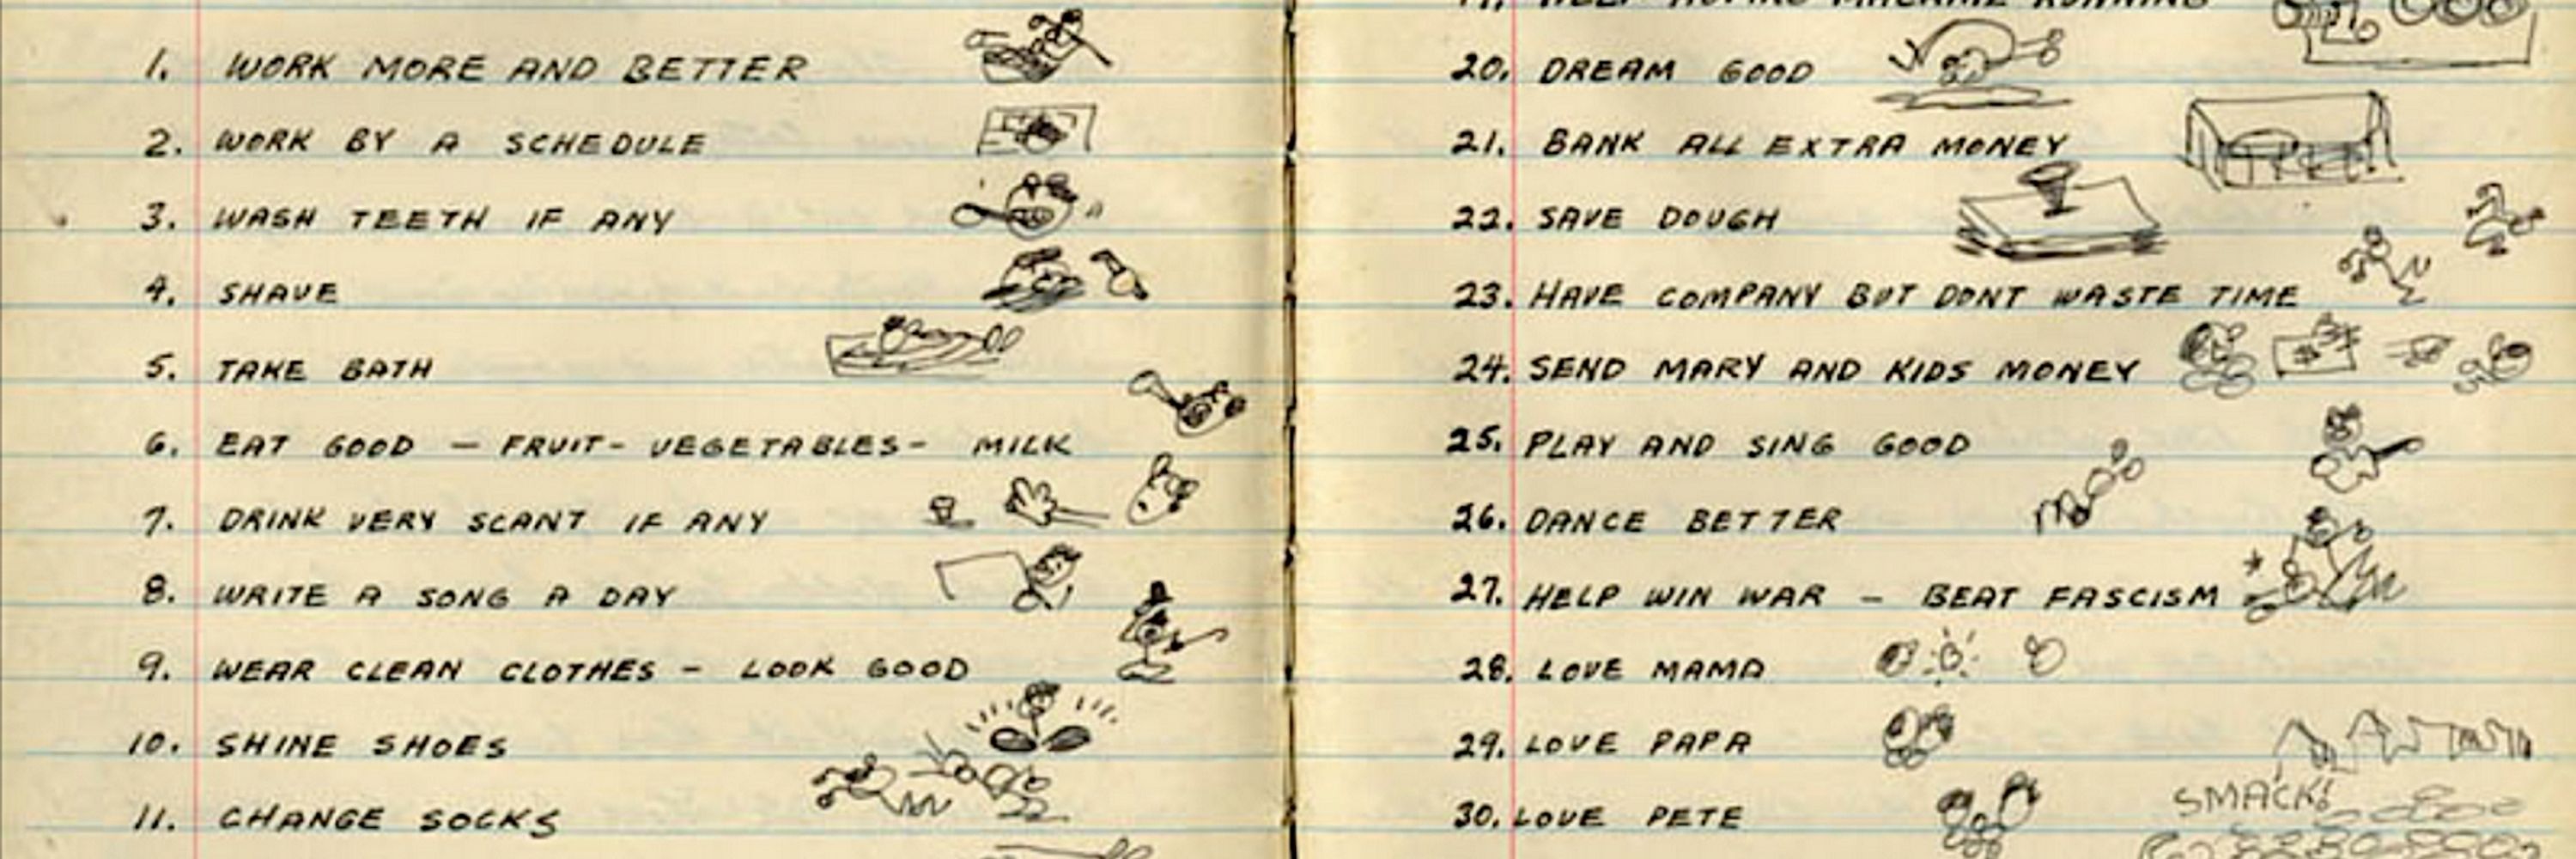 1. WORK MORE AND BETTER
2. WORK BY A SCHEDULE
3. WASH TEETH IF ANY
4. SHAVE
5. TAKE BATH
6. EAT GOOD — FRUIT - VEGETABLES - MILK
7. DRINK VERY SCANT IF ANY
8. WRITE A SONG A DAY
9. WEAR CLEAN CLOTHES - LOOK GOOD
10. SHINE SHOES
11. CHANGE SOCKS
19. HELP HOPING MACHINE RUNNING
20. DREAM GOOD
21. BANK ALL EXTRA MONEY
22. SAVE DOUGH
23. HAVE COMPANY BUT DONT WASTE TIME
24. SEND MARY AND KIDS MONEY
25. PLAY AND SING GOOD
26. DANCE BETTER
27. HELP WIN WAR - BEAT FASCISM
28. LOVE MAMA
29. LOVE PAPA
30. LOVE PETE
SMACK!